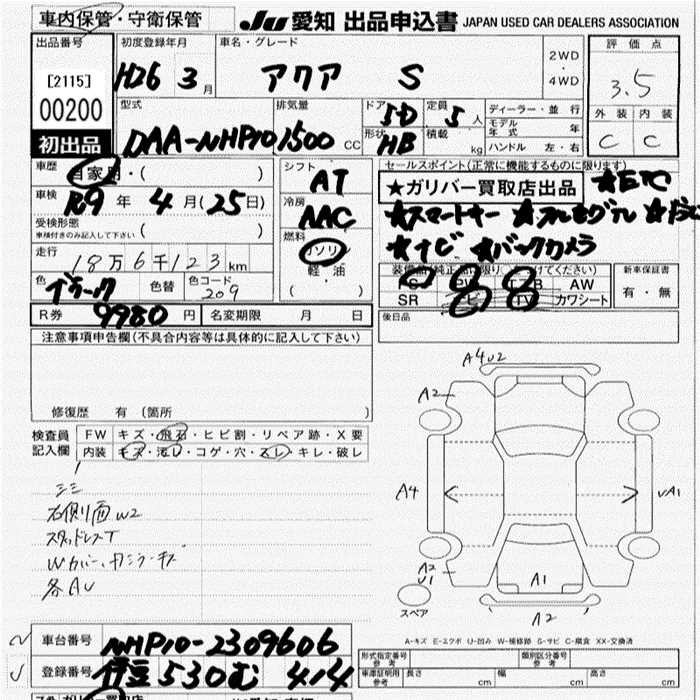 車内保管・守衛保管
JU 愛知 出品申込書 JAPAN USED CAR DEALERS ASSOCIATION
出品番号
[2115]
00200
初出品
初度登録年月
H26 3月
車名・グレード
アクア S
2WD
・
4WD
評価点
3.5
外装 内装
C C
型式
DAA-NHP10
排気量
1500 CC
ドア
5D
形状
HB
定員
5人
積載
kg
ディーラー・並行
モデル年式 年
ハンドル 左・右
車歴
自家用・( )
車検
R9年 4月(25日)
受検形態
車検付きのみ記入して下さい ( )
走行
18万6千123km
色
色替
色コード
209
シフト
AT
冷房
AAC
燃料
ガソリン
軽・油
( )
セールスポイント(正常に機能するものに限ります)
★ガリバー買取店出品 ★ETC
★スマートキー
★ナビ ★バックカメラ
SR AW
TV カワシート
新車保証書
有・無
後日品
R券 9980円
名変期限 月 日
注意事項申告欄(不具合内容等は具体的に記入して下さい)
修復歴 有 (箇所 )
検査員記入欄
FW キズ・飛石・ヒビ割・リペア跡・X要
内装 キズ・汚レ・コゲ・穴・スレ・キレ・破レ
右側面W2
スタッドレスT
各AU
A4U2
A2
A4
A2
U1
A1
A2
スペア
A-キズ E-エクボ U-凹み W-補修跡 S-サビ C-腐食 XX-交換済
車台番号 NHP10-2309606
登録番号 伊豆 530 む 414
形式指定番号
参考
類別区分番号
参考
車庫証明用
参考
長さ cm 幅 cm 高さ cm